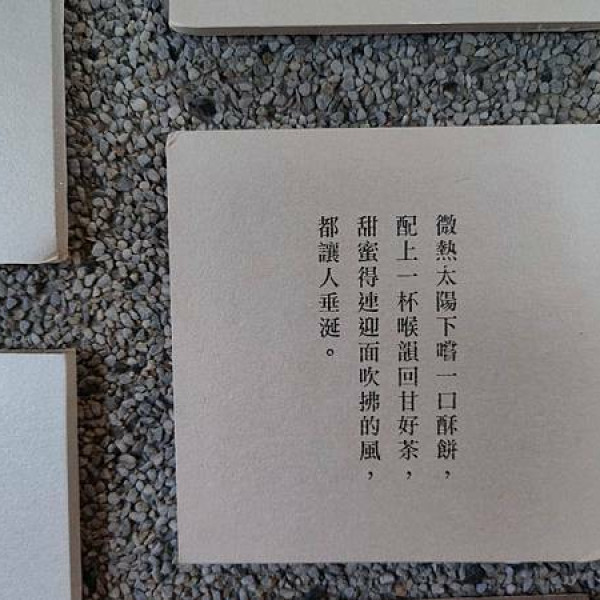 微熱太陽下嚐一口酥餅，
配上一杯喉韻回甘好茶，
甜蜜得連迎面吹拂的風，
都讓人垂涎。